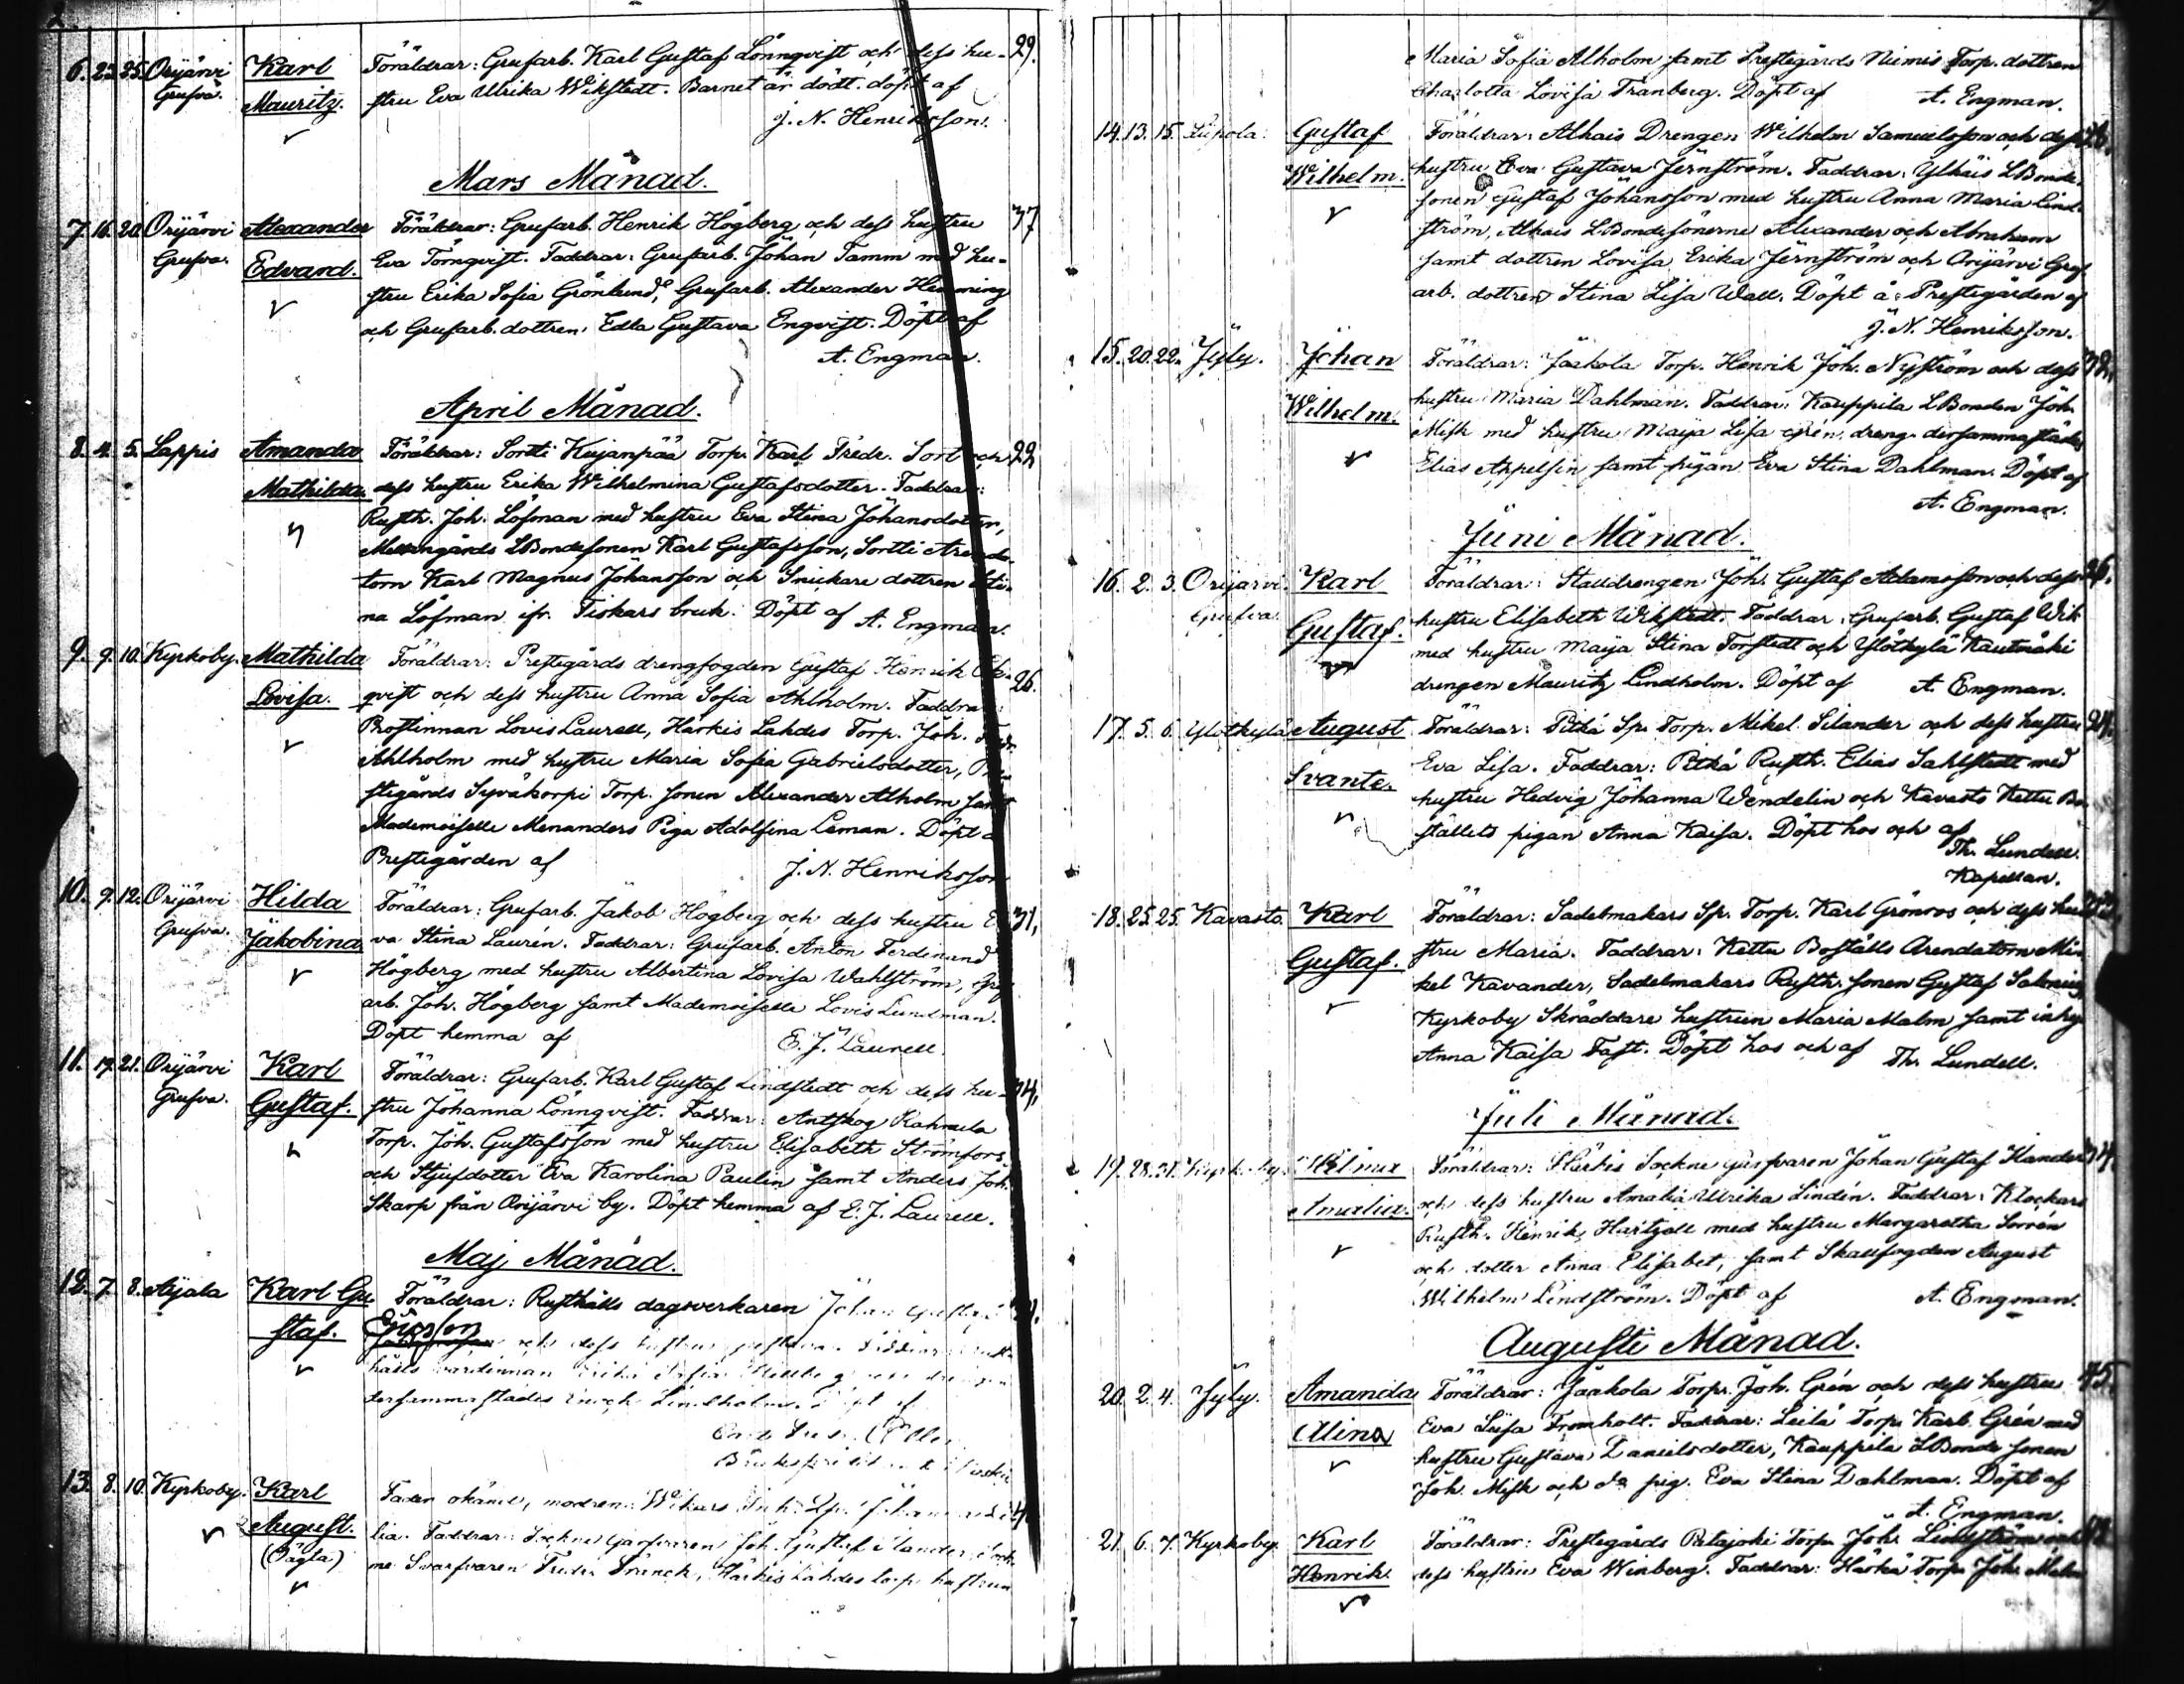 6. 23. 25. Orijärvi Karl Föräldrar: Grufarb. Karl Gustaf Lönnqvist och dess hu- 29.
Grufva. Mauritz. stru Eva Ulrika Wikstedt. Barnet är dödt. döpt af
J. N. Henriksson.
Mars Månad.
7. 16. 20. Orijärvi Alexander Föräldrar: Grufarb. Henrik Högberg och dess hustru 37
Grufva. Edvard. Eva Törnqvist. Faddrar: Grufarb. Johan Tamm med hu-
stru Erika Sofia Grönlund, Grufarb. Alexander Hemming
och Grufarb. dottren Edla Gustava Engvist. Döpt af
A. Engman.
April Månad.
8. 4. 5. Lappis Amanda Föräldrar: Sortti Kujanpää Torp. Karl Fredr. Sort och 22
Mathilda dess hustru Erika Wilhelmina Gustafsdotter. Faddrar:
Rusth. Joh. Löfman med hustru Eva Stina Johansdotter,
LBondesonen Karl Gustafsson, Sortti Arenda-
torn Karl Magnus Johansson och Snickare dottren Sti-
na Löfman ifr. Fiskars bruk. Döpt af A. Engman.
9. 9. 10. Kyrkoby. Mathilda Föräldrar: Prestegårds drengfogden Gustaf Henrik Ek- 26.
Lovisa. qvist och dess hustru Anna Sofia Ahlholm. Faddrar:
Prostinnan Lovis Laurell, Härkis Lahdes Torp. Joh. Fredr.
Ahlholm med hustru Maria Sofia Gabrielsdotter, Pre-
stegårds Syväkorpi Torp. sonen Alexander Alholm samt
Mademoiselle Menanders Piga Adolfina Leman. Döpt å
Prestegården af J. N. Henriksson
10. 9. 12. Orijärvi Hilda Föräldrar: Grufarb. Jakob Högberg och dess hustru E- 31,
Grufva. Jakobina va Stina Laurén. Faddrar: Grufarb. Anton Ferdinand
Högberg med hustru Albertina Lovisa Wahlström, Gruf
arb. Joh. Högberg samt Mademoiselle Lovis Lundman.
Döpt hemma af E. J. Laurell.
11. 19. 21. Orijärvi Karl Föräldrar: Grufarb. Karl Gustaf Lindstedt och dess hu- 34,
Grufva. Gustaf. stru Johanna Lönnqvist. Faddrar: Antskog Kahmela
Torp. Joh. Gustafsson med hustru Elisabeth Strömfors
och Stjufdotter Eva Karolina Paulin samt Anders Joh.
Skarp från Orijärvi by. Döpt hemma af E. J. Laurell.
Maj Månad.
12. 7. 8. Aijala Karl Gu Föräldrar: Rusthålls dagsverkaren Johan Gustaf
staf. Ericsson och dess hustru
hålls värdinnan Erika Sofia
dersammastädes Enoch Lindholm. Döpt af
13. 8. 10. Kyrkoby. Karl Fader okänd, modren: Wikars
August. lia. Faddrar: Sockne garfvaren Joh. Gustaf Ilander, Sock-
(Oägta) ne Svarfvaren Fredr. Franck, Härkis Lahdes torp. hustrun
Maria Sofia Alholm samt Prestegårds Niemis Torp. dottren
Charlotta Lovisa Tranberg. Döpt af A. Engman.
14. 13. 15. Gustaf Föräldrar: Alhais Drengen Wilhelm Samuelsson och dess 28.
Wilhelm. hustru Eva Gustava Jernström. Faddrar: Ylhäis LBonde-
sonen Gustaf Johansson med hustru Anna Maria Lind-
ström, Alhais LBondesönerne Alexander och Abraham
samt dottren Lovisa Erika Jernström och Orijärvi Gruf
arb. dottren Stina Lisa Wall. Döpt å Prestegården af
J. N. Henriksson.
15. 20. 22. Jyly. Johan Föräldrar: Jaakola Torp. Henrik Joh. Nyström och dess 38,
Wilhelm. hustru Maria Dahlman. Faddrar: Kauppila LBonden Joh.
Misk med hustru Maija Lisa Grén, dreng. dersammastädes
Elias Appelsin samt pigan Eva Stina Dahlman. Döpt af
A. Engman.
Juni Månad.
16. 2. 3. Orijärvi Karl Föräldrar: Stalldrengen Joh. Gustaf Adamsson och dess 26.
Grufva Gustaf. hustru Elisabeth Wikstedt. Faddrar: Grufarb. Gustaf Wik
med hustru Maija Stina Torstedt och Ylötkylä Kautmäki
drengen Mauritz Lindholm. Döpt af A. Engman.
17. 5. 6. Ylötkylä August Föräldrar: Pitkä Sp. Torp. Mikel Silander och dess hustru 24.
Svante. Eva Lisa. Faddrar: Pitkä Rusth. Elias Sahlstedt med
hustru Hedvig Johanna Wendelin och Kavasto Kettu Bo-
ställets pigan Anna Kaisa. Döpt hos och af
Th. Lundell.
Kapellan.
18. 25. 25. Kavasto. Karl Föräldrar: Sadelmakars Sp. Torp. Karl Grönros och dess hu
Gustaf. stru Maria. Faddrar: Kettu Boställs Arendatorn Mi-
kel Kavander, Sadelmakars Rusth. sonen Gustaf
Kyrkoby Skräddare hustrun Maria Malm samt inhys
Anna Kaisa Fast. Döpt hos och af Th. Lundell.
Juli Månad.
19. 28. 31. Kyrkoby. Hilma Föräldrar: Härkis Sockne garfvaren Johan Gustaf Ilander 34
Amalia. och dess hustru Amalia Ulrika Lindén. Faddrar: Klockars
Rusth. Henrik Hartzell med hustru Margaretha Sorrén
och dotter Anna Elisabet, samt Skallfogden August
Wilhelm Lindström. Döpt af A. Engman.
Augusti Månad.
20. 2. 4. Jyly. Amanda Föräldrar: Jaakola Torpr. Joh. Grén och dess hustru 45.
Alina Eva Lisa Fromholt. Faddrar: Leilä Torp. Karl Grén med
hustru Gustava Danielsdotter, Kauppila LBonde sonen
Joh. Misk och do pig. Eva Stina Dahlman. Döpt af
A. Engman.
21. 6. 7. Kyrkoby. Karl Föräldrar: Prestegårds Pitajoki Torp. Joh. Lindström och
Henrik. dess hustru Eva Winberg. Faddrar: Härkä Torp. Joh. Malm